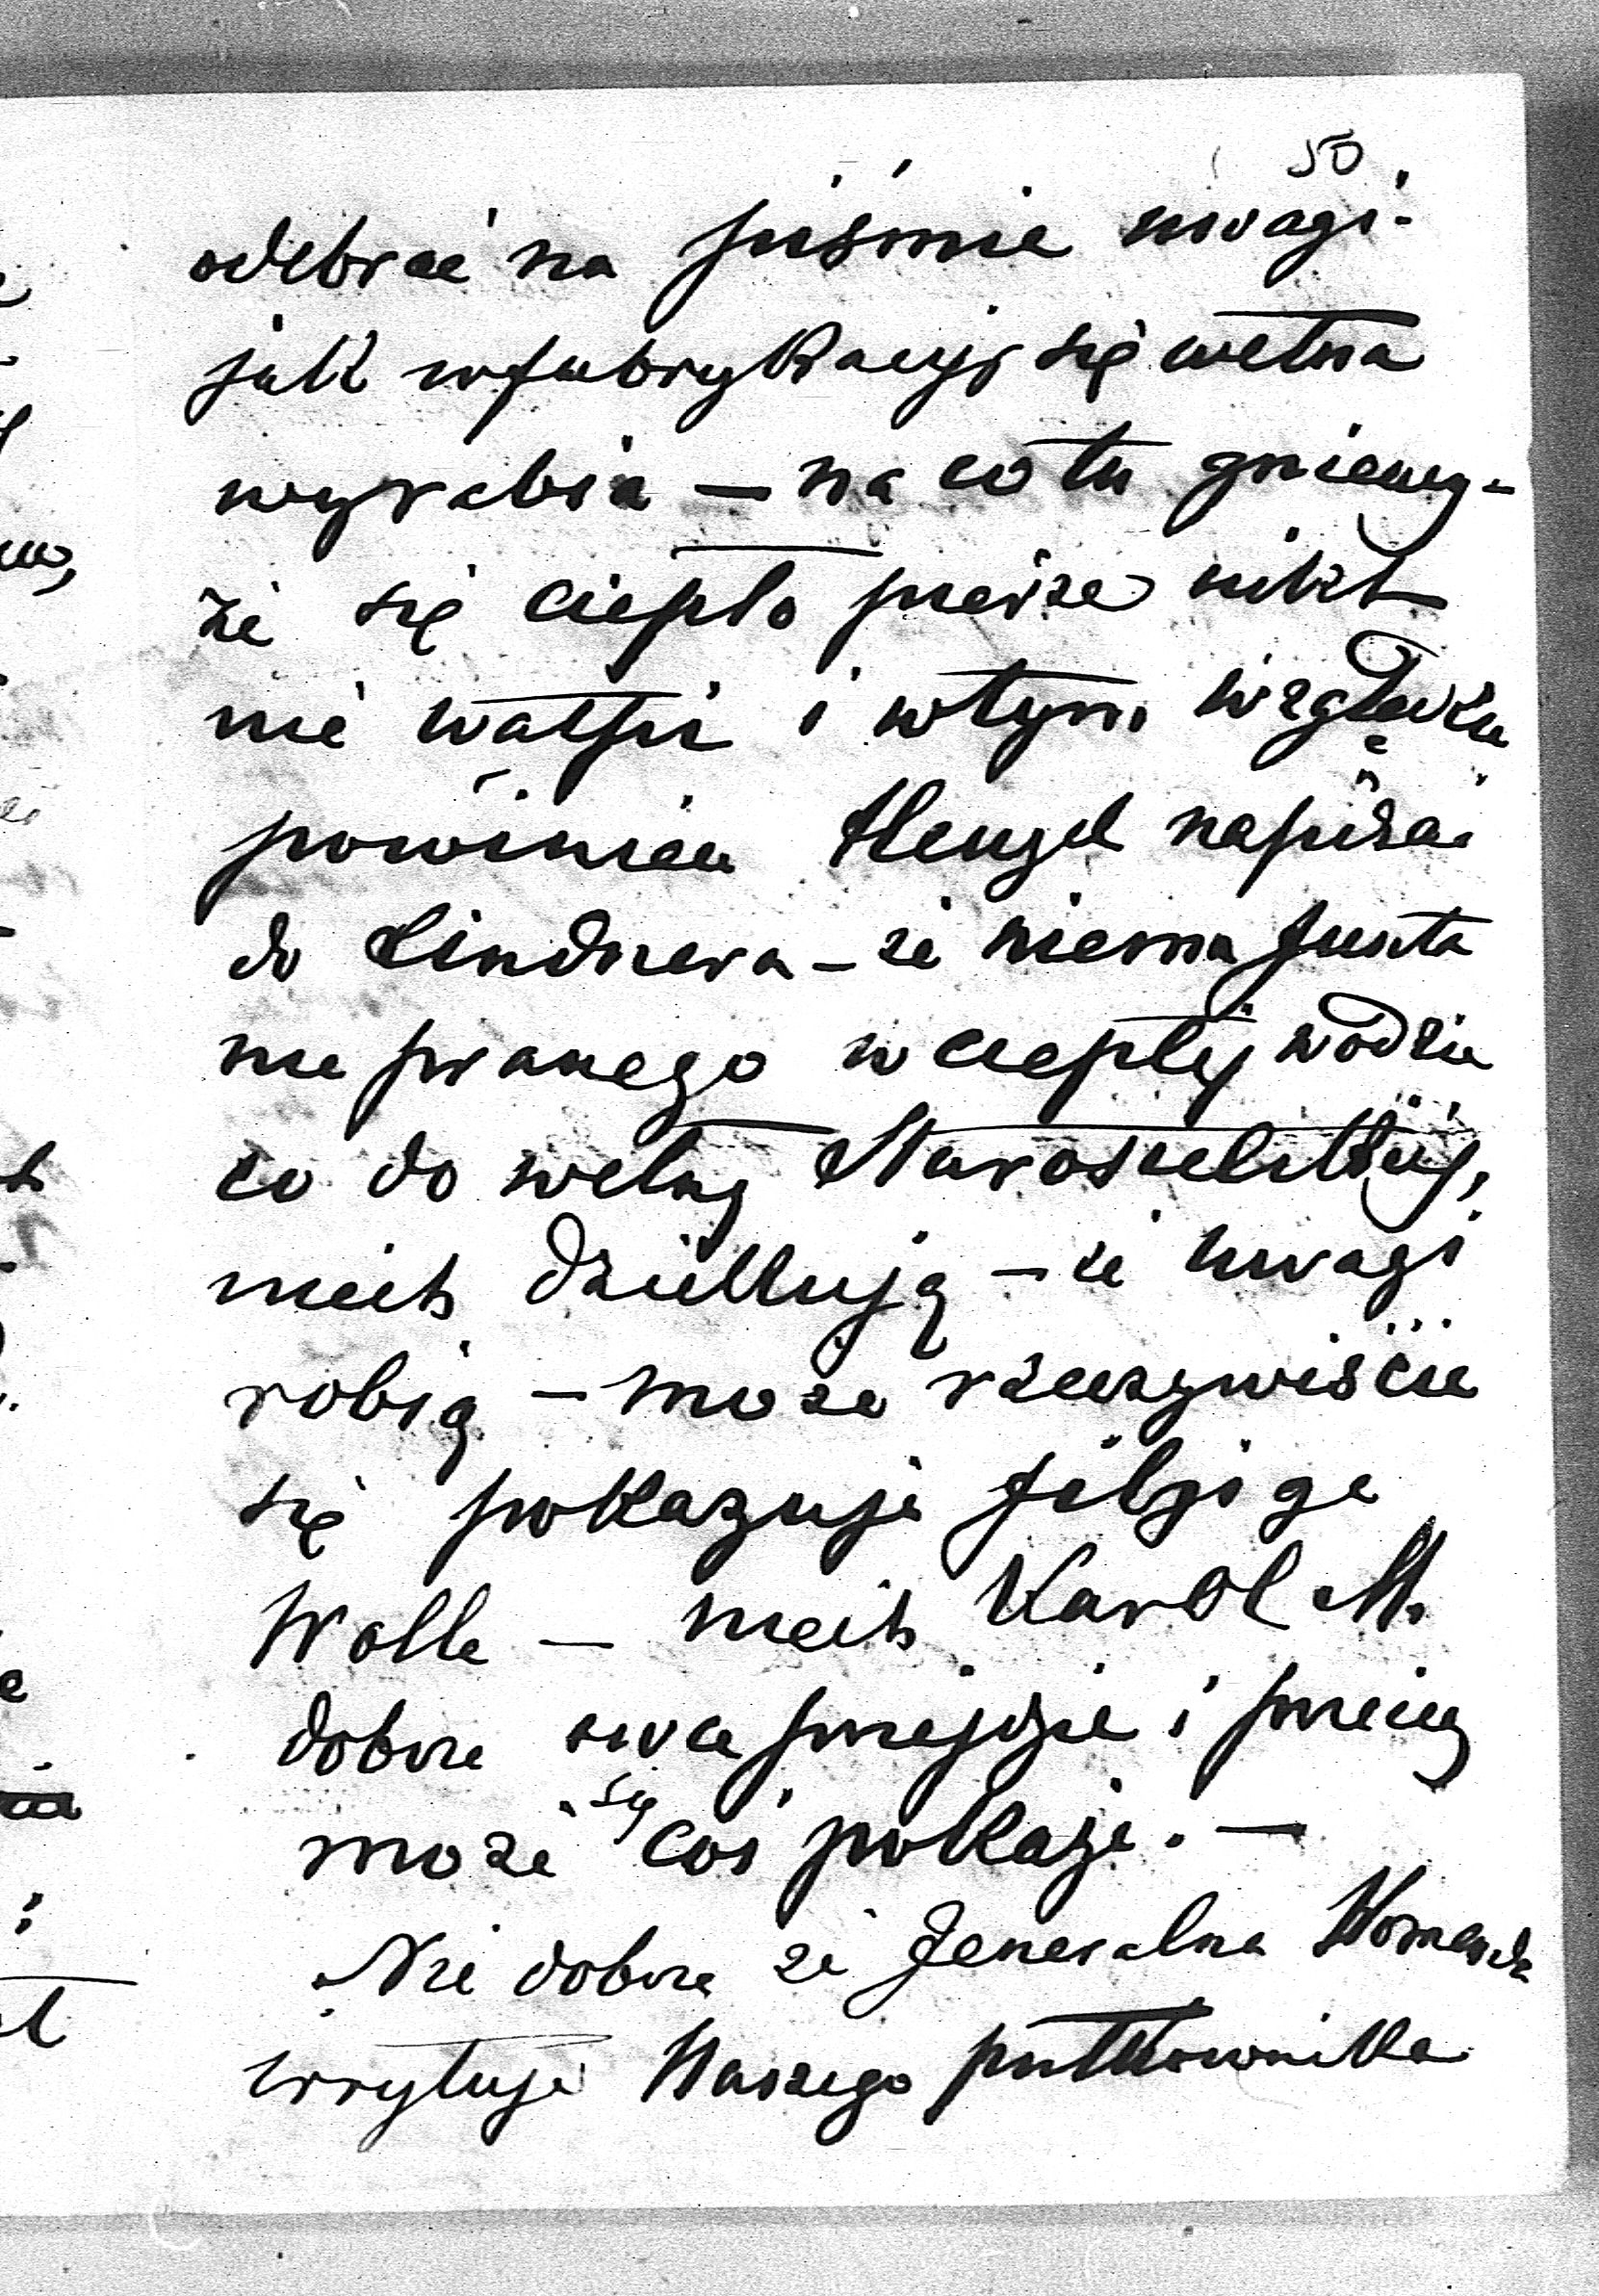 50
odebrać na piśmie uwagi
jak w fabrykacyi się wełna
wyrabia — na co tu gniewy -
że się ciepło pierze nikt
nie wątpi i w tym względzie
powinien Hengel napisać
do Lindnera — że niema funta
nie pranego w ciepłej wodzie
co do wełny Starosieleckiej,
niech dziękują — że uwagi
robią — może rzeczywiście
się pokazuje filzige
Wolle — niech Karol M.
dobrze owce przejdzie i
może się coś pokaże. —
Nie dobrze że Jeneralna Komenda
irrytuje Naszego pułkownika